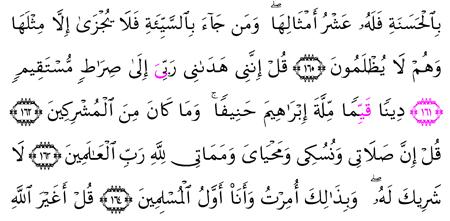 بِٱلْحَسَنَةِ فَلَهُۥ عَشْرُ أَمْثَالِهَا ۖ وَمَن جَآءَ بِٱلسَّيِّئَةِ فَلَا يُجْزَىٰٓ إِلَّا مِثْلَهَا
وَهُمْ لَا يُظْلَمُونَ ١٦٠ قُلْ إِنَّنِى هَدَىٰنِى رَبِّىَ إِلَىٰ صِرَٰطٍ مُّسْتَقِيمٍ
١٦١ دِينًا قَيِّمًا مِّلَّةَ إِبْرَٰهِيمَ حَنِيفًا ۚ وَمَا كَانَ مِنَ ٱلْمُشْرِكِينَ ١٦٢
قُلْ إِنَّ صَلَاتِى وَنُسُكِى وَمَحْيَاىَ وَمَمَاتِى لِلَّهِ رَبِّ ٱلْعَـٰلَمِينَ ١٦٣ لَا
شَرِيكَ لَهُۥ ۖ وَبِذَٰلِكَ أُمِرْتُ وَأَنَا۠ أَوَّلُ ٱلْمُسْلِمِينَ ١٦٤ قُلْ أَغَيْرَ ٱللَّهِ